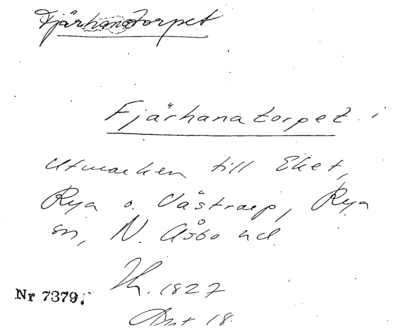 Fjärhanatorpet
Fjärhanatorpet i
utmarken till Eket,
Rya o. Västrarp, Rya
sn, N. Åsbo hd.
Hr. 1827
Nr 7379.
Akt 18.